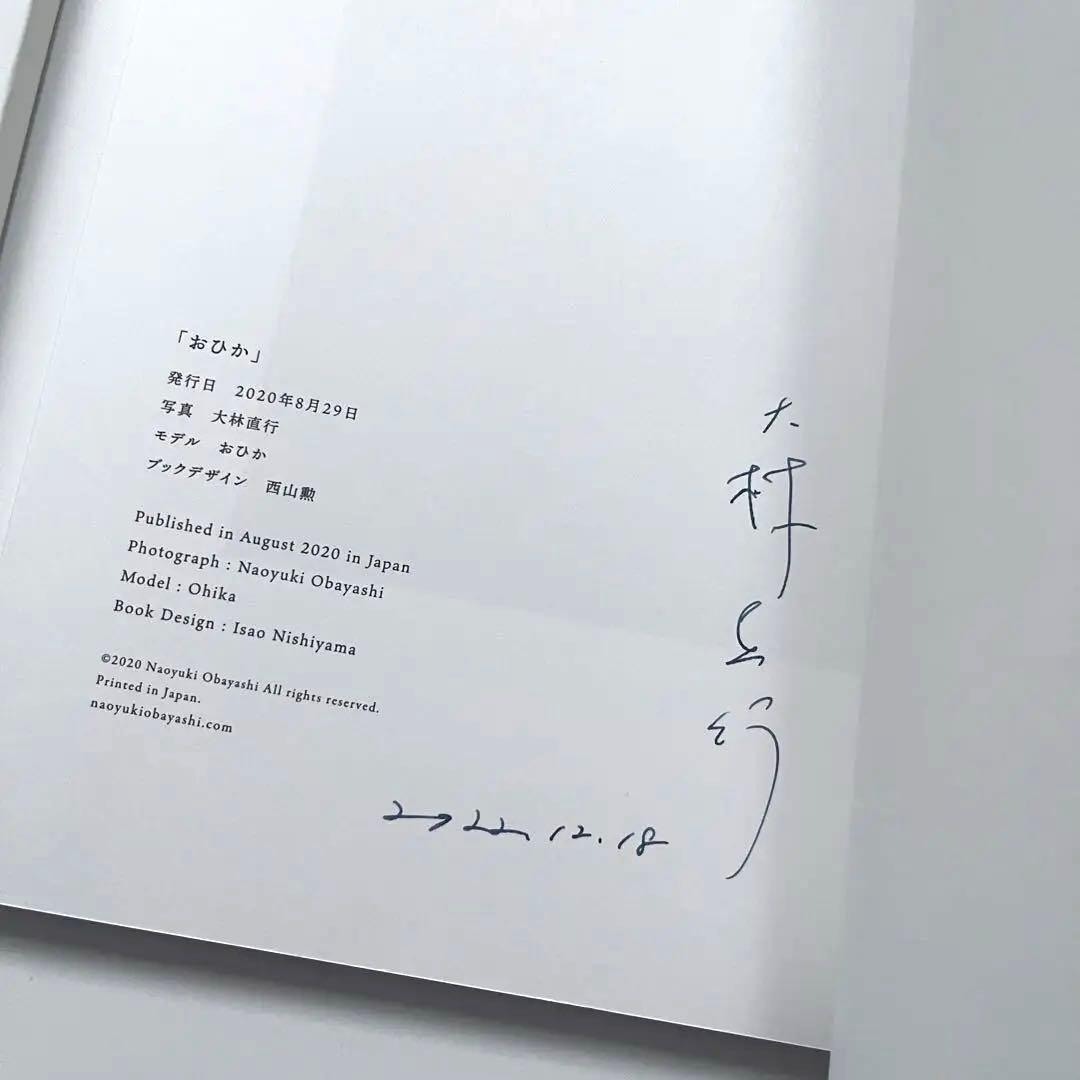 「おひか」
発行日　2020年8月29日
写真　大林直行
モデル　おひか
ブックデザイン　西山勲
Published in August 2020 in Japan
Photograph : Naoyuki Obayashi
Model : Ohika
Book Design : Isao Nishiyama
©2020 Naoyuki Obayashi All rights reserved.
Printed in Japan.
naoyukiobayashi.com
大林直行
2022.12.18